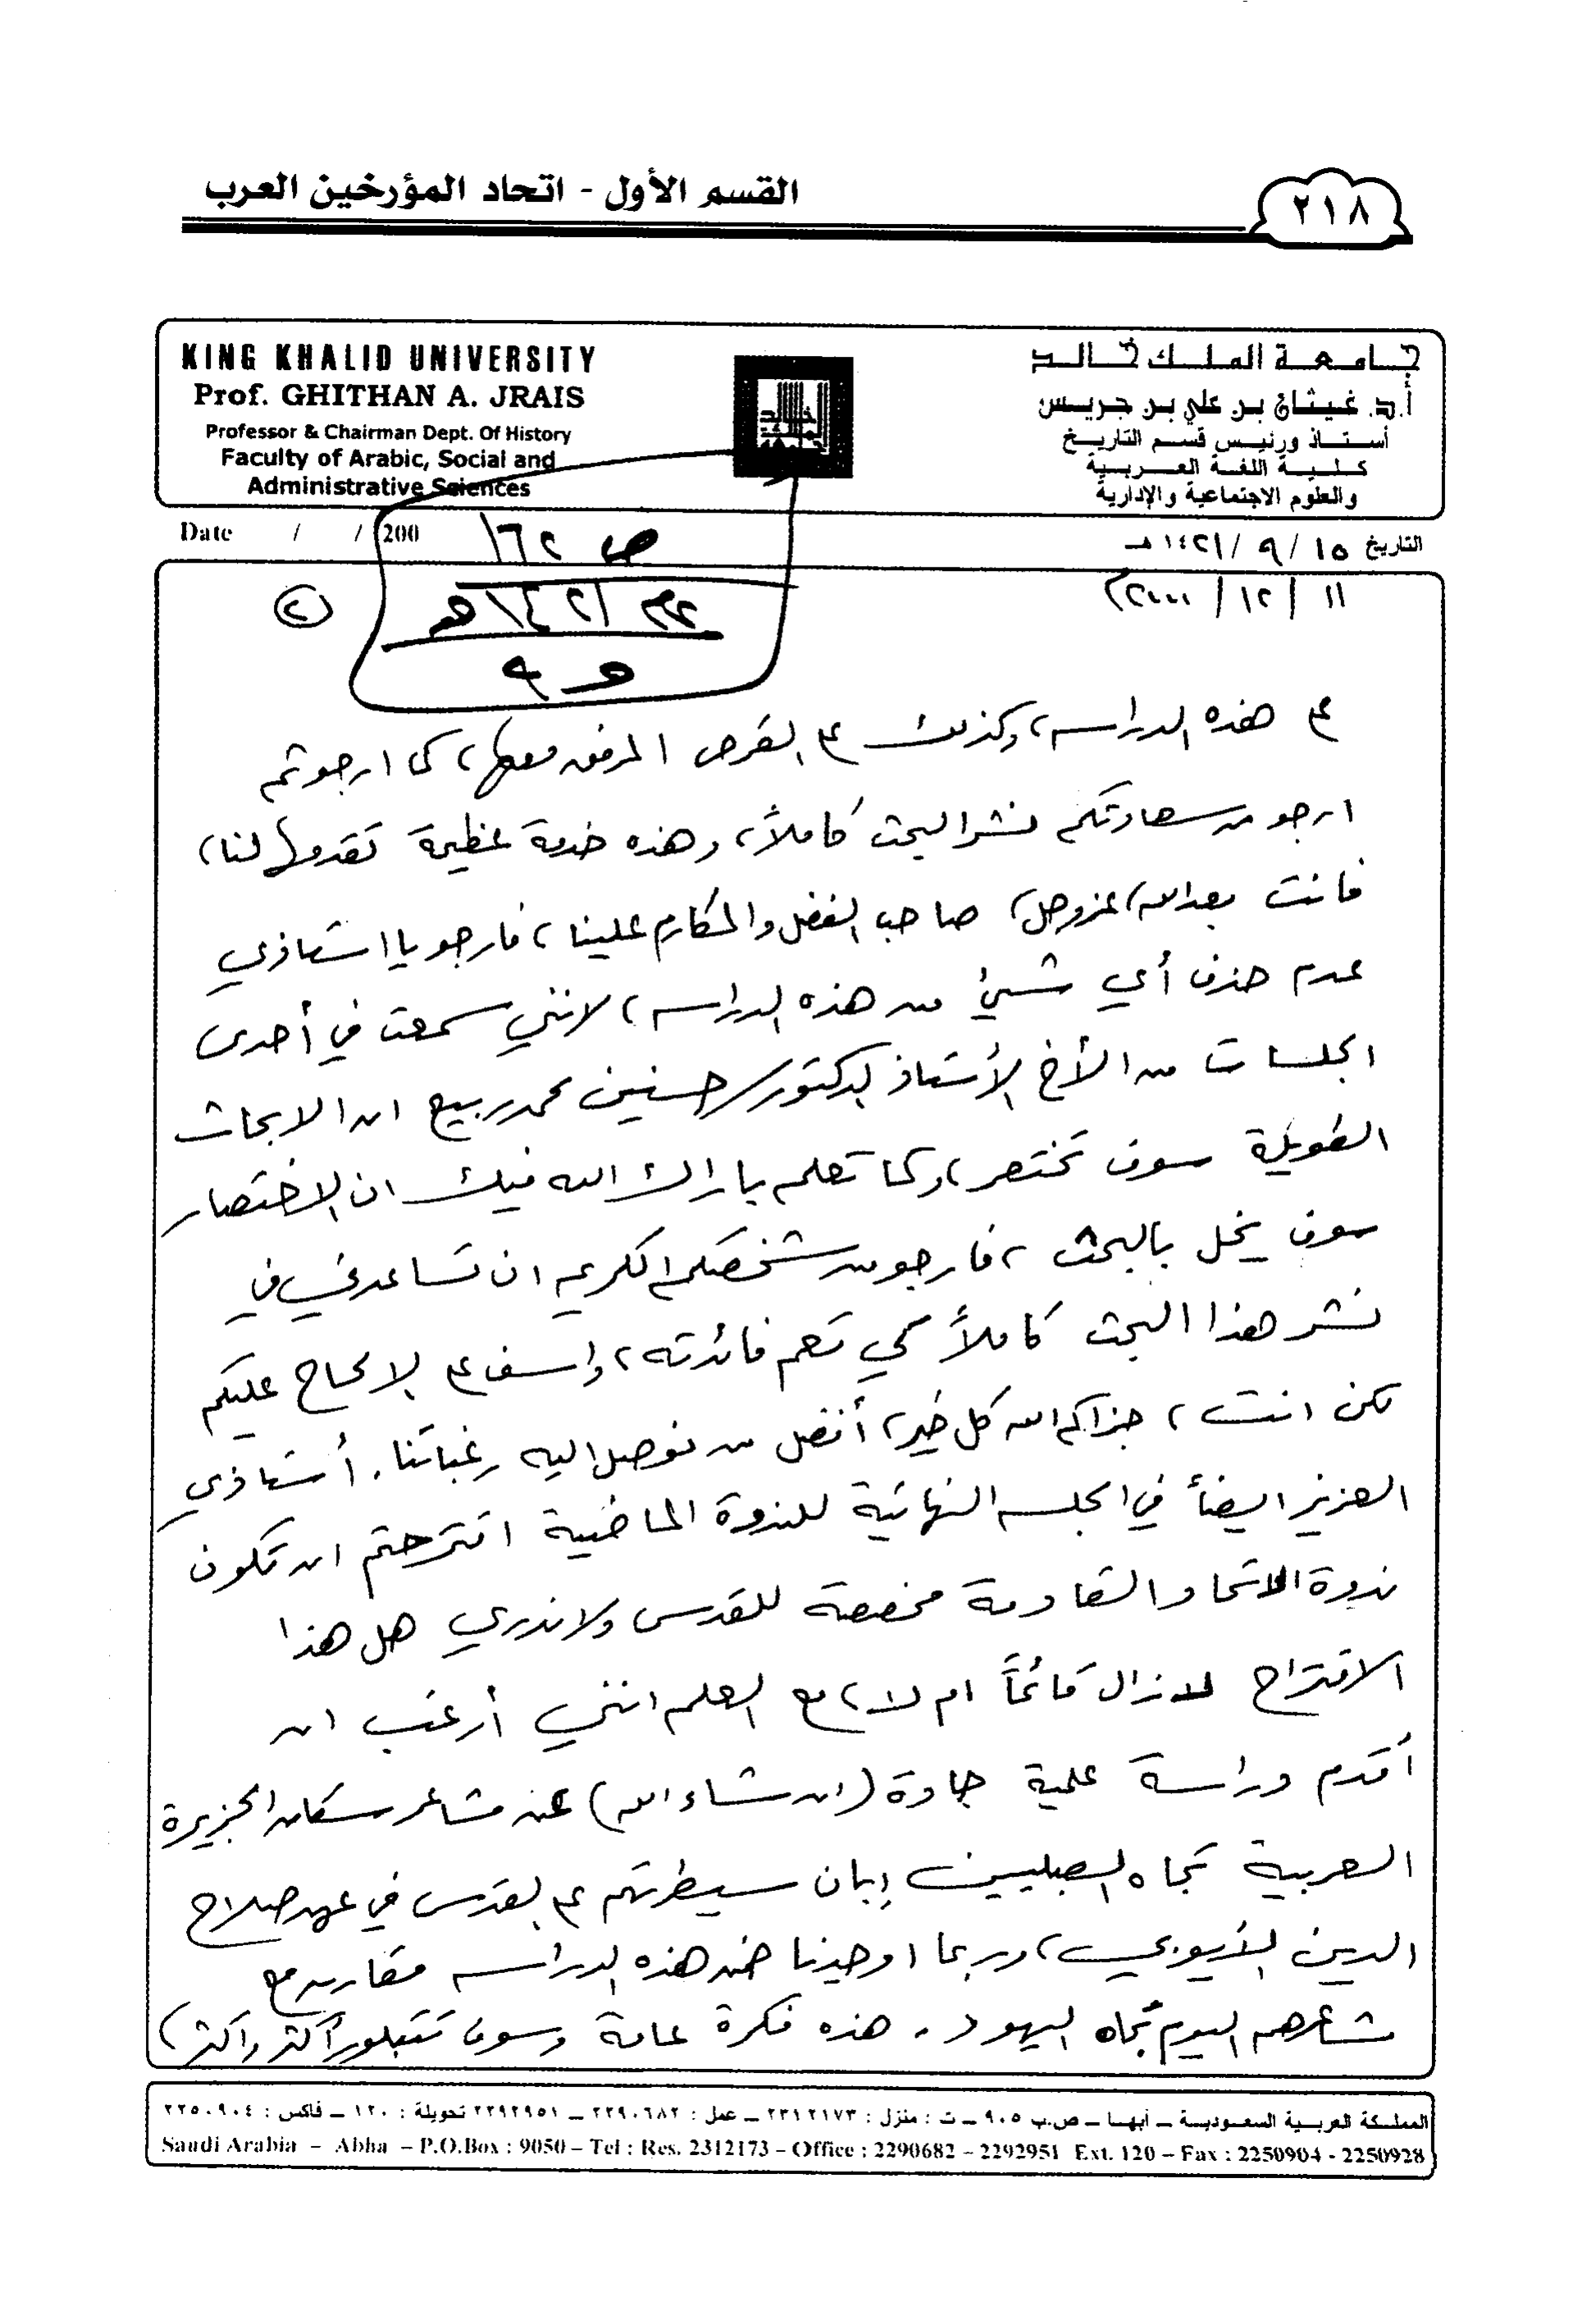 القسم الأول - اتحاد المؤرخين العرب
٢١٨
KING KHALID UNIVERSITY
Prof. GHITHAN A. JRAIS
Professor & Chairman Dept. Of History
Faculty of Arabic, Social and
Administrative Sciences
جامعة الملك خالد
أ.د. غيثان بن علي بن جريس
أستاذ ورئيس قسم التاريخ
كلية اللغة العربية
والعلوم الاجتماعية والإدارية
Date / / 200
التاريخ ١٥/ ٩ /١٤٢١هـ
١١ / ١٢ / ٢٠٠٠م
ص ١٦٢
١٤٢١هـ
و ٩
(٢)
على هذه الدراسة، وكذلك على القرص المرفق معها، كما ارجو ثم
ارجو من سعادتكم نشر البحث كاملاً، وهذه خدمة عظيمة تقدمها لنا،
فانت بعد الله (عزوجل) صاحب الفضل والمكارم علينا، فارجو يا استاذي
عدم حذف أي شيئ من هذه الدراسة، لانني سمعت في أحدى
الجلسات من الأخ الأستاذ الدكتور/ حسنين محمد ربيع ان الابحاث
الطويلة سوف تختصر، وكما تعلم بارك الله فيك ان الاختصار
سوف يخل بالبحث، فارجو من شخصكم الكريم ان تساعدني في
نشر هذا البحث كاملاً كي تعم فائدته، واسف على الالحاح عليكم
لكن انت، جزاكم الله كل خير، أفضل من نوصل اليه رغباتنا. أستاذي
العزيز ايضاً في الجلسة النهائية للندوة الماضية اقترحتم ان تكون
ندوة الاتحاد القادمة مخصصة للقدس ولا ندري هل هذا
الاقتراح لازال قائماً ام لا، مع العلم انني أرغب ان
أقدم دراسة علمية جادة (ان شاء الله) عن مشاعر سكان الجزيرة
العربية تجاه الصليبيين إبان سيطرتهم على القدس في عهد صلاح
الدين الأيوبي، وربما اوجدنا ضمن هذه الدراسة مقارنة مع
مشاعرهم اليوم تجاه اليهود. هذه فكرة عامة وسوف تتبلور أكثر واكثر،
المملكة العربية السعودية - أبها - ص.ب ٩٠٥ - ت : منزل : ٢٣١٢١٧٣ - عمل : ٢٢٩٠٦٨٢ - ٢٢٩٢٩٥١ تحويلة : ١٢٠ - فاكس : ٢٢٥٠٩٠٤
Saudi Arabia – Abha – P.O.Box : 9050 – Tel : Res. 2312173 – Office : 2290682 – 2292951 Ext. 120 – Fax : 2250904 - 2250928